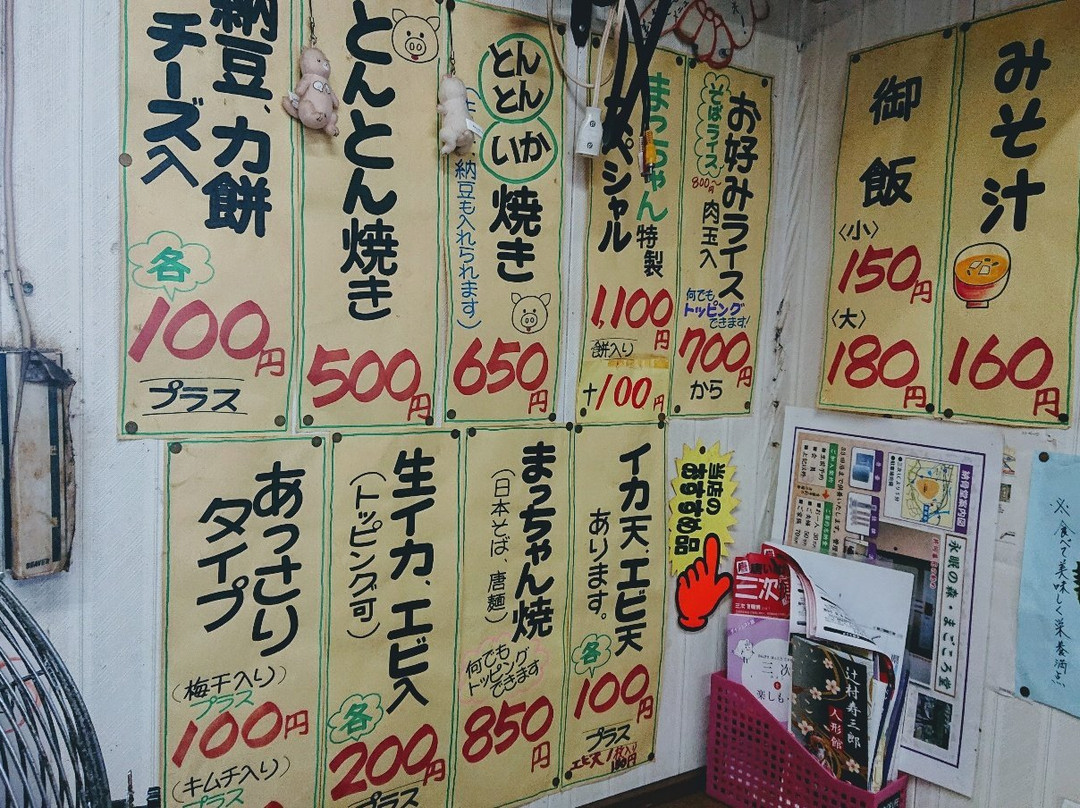 納豆、力餅
チーズ入
各
100円
プラス
とんとん焼き
500円
とんとん
いか
焼き
納豆も入れられます)
650円
まっちゃん特製
スペシャル
1,100円
餅入り
+100円
お好みライス
そばライス
800円〜
肉玉入
何でも
トッピング
できます!
700円
から
御飯
〈小〉
150円
〈大〉
180円
みそ汁
160円
あっさり
タイプ
(梅干入り)
プラス
100円
(キムチ入り)
プラス
生イカ、エビ入
(トッピング可)
各
200円
プラス
まっちゃん焼
(日本そば、唐麺)
何でも
トッピング
できます
850円
イカ天、エビ天
あります。
各
100円
プラス
当店の
おすすめ品
永眠の森・まごころ堂
三次
三次
楽しも
辻村寿三郎
人形館
※食べて美味しく栄養満点